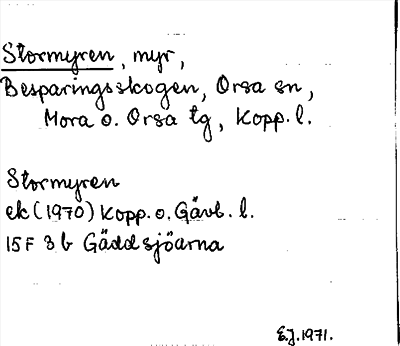 Stormyren, myr,
Besparingsskogen, Orsa sn,
Mora o. Orsa tg, Kopp. l.
Stormyren
ek (1970) Kopp. o. Gävl. l.
15F 3b Gäddsjöarna
E.J. 1971.